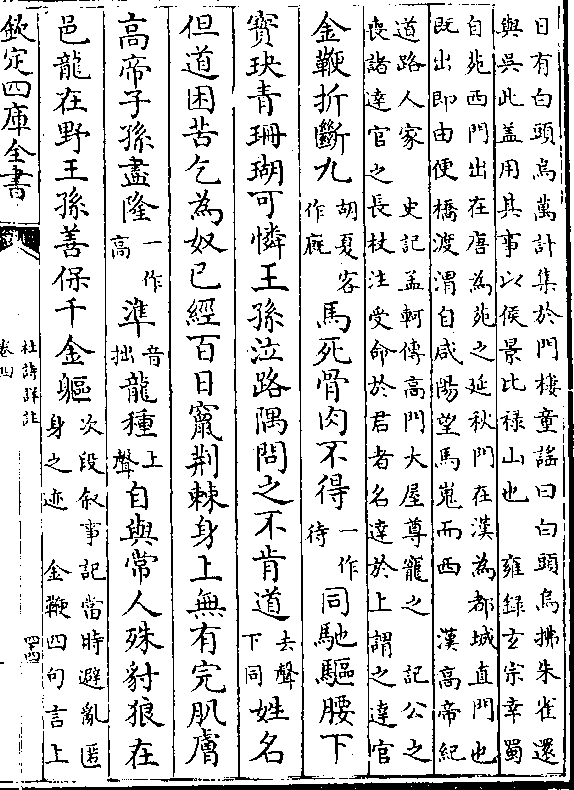 日有白頭烏萬計集於門樓童謡曰白頭烏拂朱雀還
與吳此盖用其事以侯景比禄山也　雍録玄宗幸蜀
自苑西門出在唐為苑之延秋門在漢為都城直門也
既出即由便橋渡渭自咸陽望馬嵬而西　漢高帝紀
道路人家　史記孟軻傳高門大屋尊寵之　記公之
喪諸達官之長杖注受命於君者名達於上謂之達官
金鞭折斷九胡夏客作廐馬死骨肉不得一作待同馳驅腰下
寶玦青珊瑚可憐王孫泣路隅問之不肯道去聲下同姓名
但道困苦乞為奴已經百日竄荆棘身上無有完肌膚
高帝子孫盡隆一作高準音拙龍種上聲自與常人殊豺狼在
邑龍在野王孫善保千金軀次段叙事記當時避亂匿身之迹　金鞭四句言上
欽定四庫全書
杜詩詳註
卷四
四四